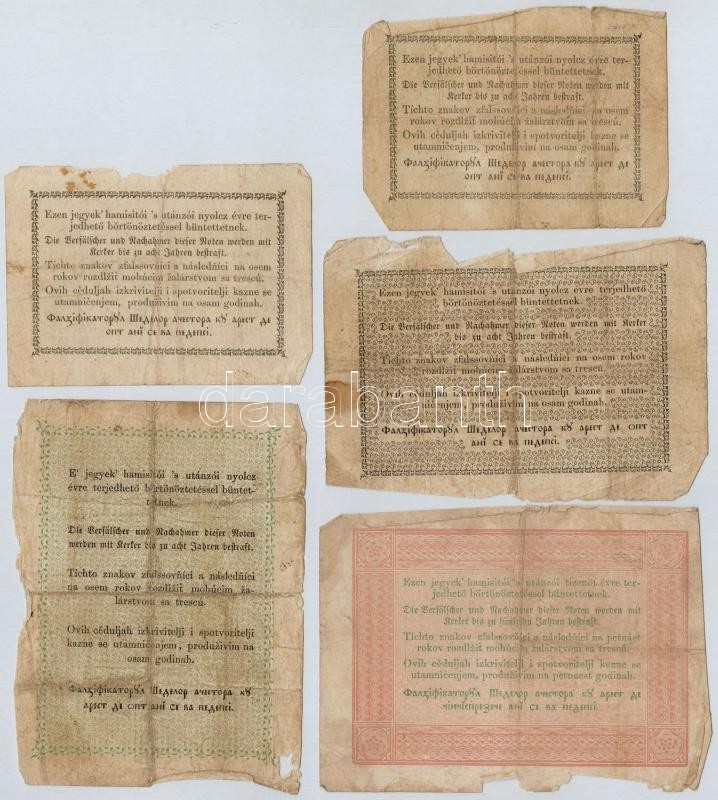 Ezen jegyek' hamisítói 's utánzói nyolcz évre ter-
jedhető börtönöztetéssel büntettetnek.
Die Verfälscher und Nachahmer dieser Noten werden mit
Kerker bis zu acht Jahren bestraft.
Tíchto znakov zfalssovňíci a následňíci na osem
rokov rozdlžit mohúcím žalárstvom sa trescú.
Ovih cêduljah izkrivitelji i spotvoritelji kazne se
utamničenjem, produživim na osam godinah.
Фалзіфікаторꙋл Шеделор ачестора кꙋ арест де
опт анї се ва педепсі.
Ezen jegyek' hamisítói 's utánzói nyolcz évre ter-
jedhető börtönöztetéssel büntettetnek.
Die Verfälscher und Nachahmer dieser Noten werden mit
Kerker bis zu acht Jahren bestraft.
Tíchto znakov zfalssovňíci a následňíci na osem
rokov rozdlžit mohúcím žalárstvom sa trescú.
Ovih cêduljah izkrivitelji i spotvoritelji kazne se
utamničenjem, produživim na osam godinah.
Фалзіфікаторꙋл Шеделор ачестора кꙋ арест де
опт анї се ва педепсі.
Ezen jegyek' hamisítói 's utánzói nyolcz évre terjedhető
börtönöztetéssel büntettetnek.
Die Verfälscher und Nachahmer dieser Noten werden mit Kerker
bis zu acht Jahren bestraft.
Tíchto znakov zfalssovňíci a následňíci na osem rokov
rozdlžit mohúcím žalárstvom sa trescú.
Ovih cêduljah izkrivitelji i spotvoritelji kazne se utam-
ničenjem, produživim na osam godinah.
Фалзіфікаторꙋл Шеделор ачестора кꙋ арест де опт
анї се ва педепсі.
darabanth
E' jegyek' hamisítói 's utánzói nyolcz
évre terjedhető börtönöztetéssel büntet-
tetnek.
Die Verfälscher und Nachahmer dieser Noten
werden mit Kerker bis zu acht Jahren bestraft.
Tíchto znakov zfalssovňíci a následňíci
na osem rokov rozdlžit mohúcím ža-
lárstvom sa trescú.
Ovih cêduljah izkrivitelji i spotvoritelji
kazne se utamničenjem, produživim na
osam godinah.
Фалзіфікаторꙋл Шеделор ачестора кꙋ
арест де опт анї се ва педепсі.
Ezen jegyek' hamisítói 's utánzói tizenöt évre ter-
jedhető börtönöztetéssel büntettetnek.
Die Verfälscher und Nachahmer dieser Noten werden mit
Kerker bis zu fünfzehn Jahren bestraft.
Tíchto znakov zfalssovňíci a následňíci na petnást
rokov rozdlžit mohúcím žalárstvom sa trescú.
Ovih cêduljah izkrivitelji i spotvoritelji kazne se
utamničenjem, produživim na petnaest godinah.
Фалзіфікаторꙋл Шеделор ачестора кꙋ арест де
чінчіспрезѣче анї се ва педепсі.